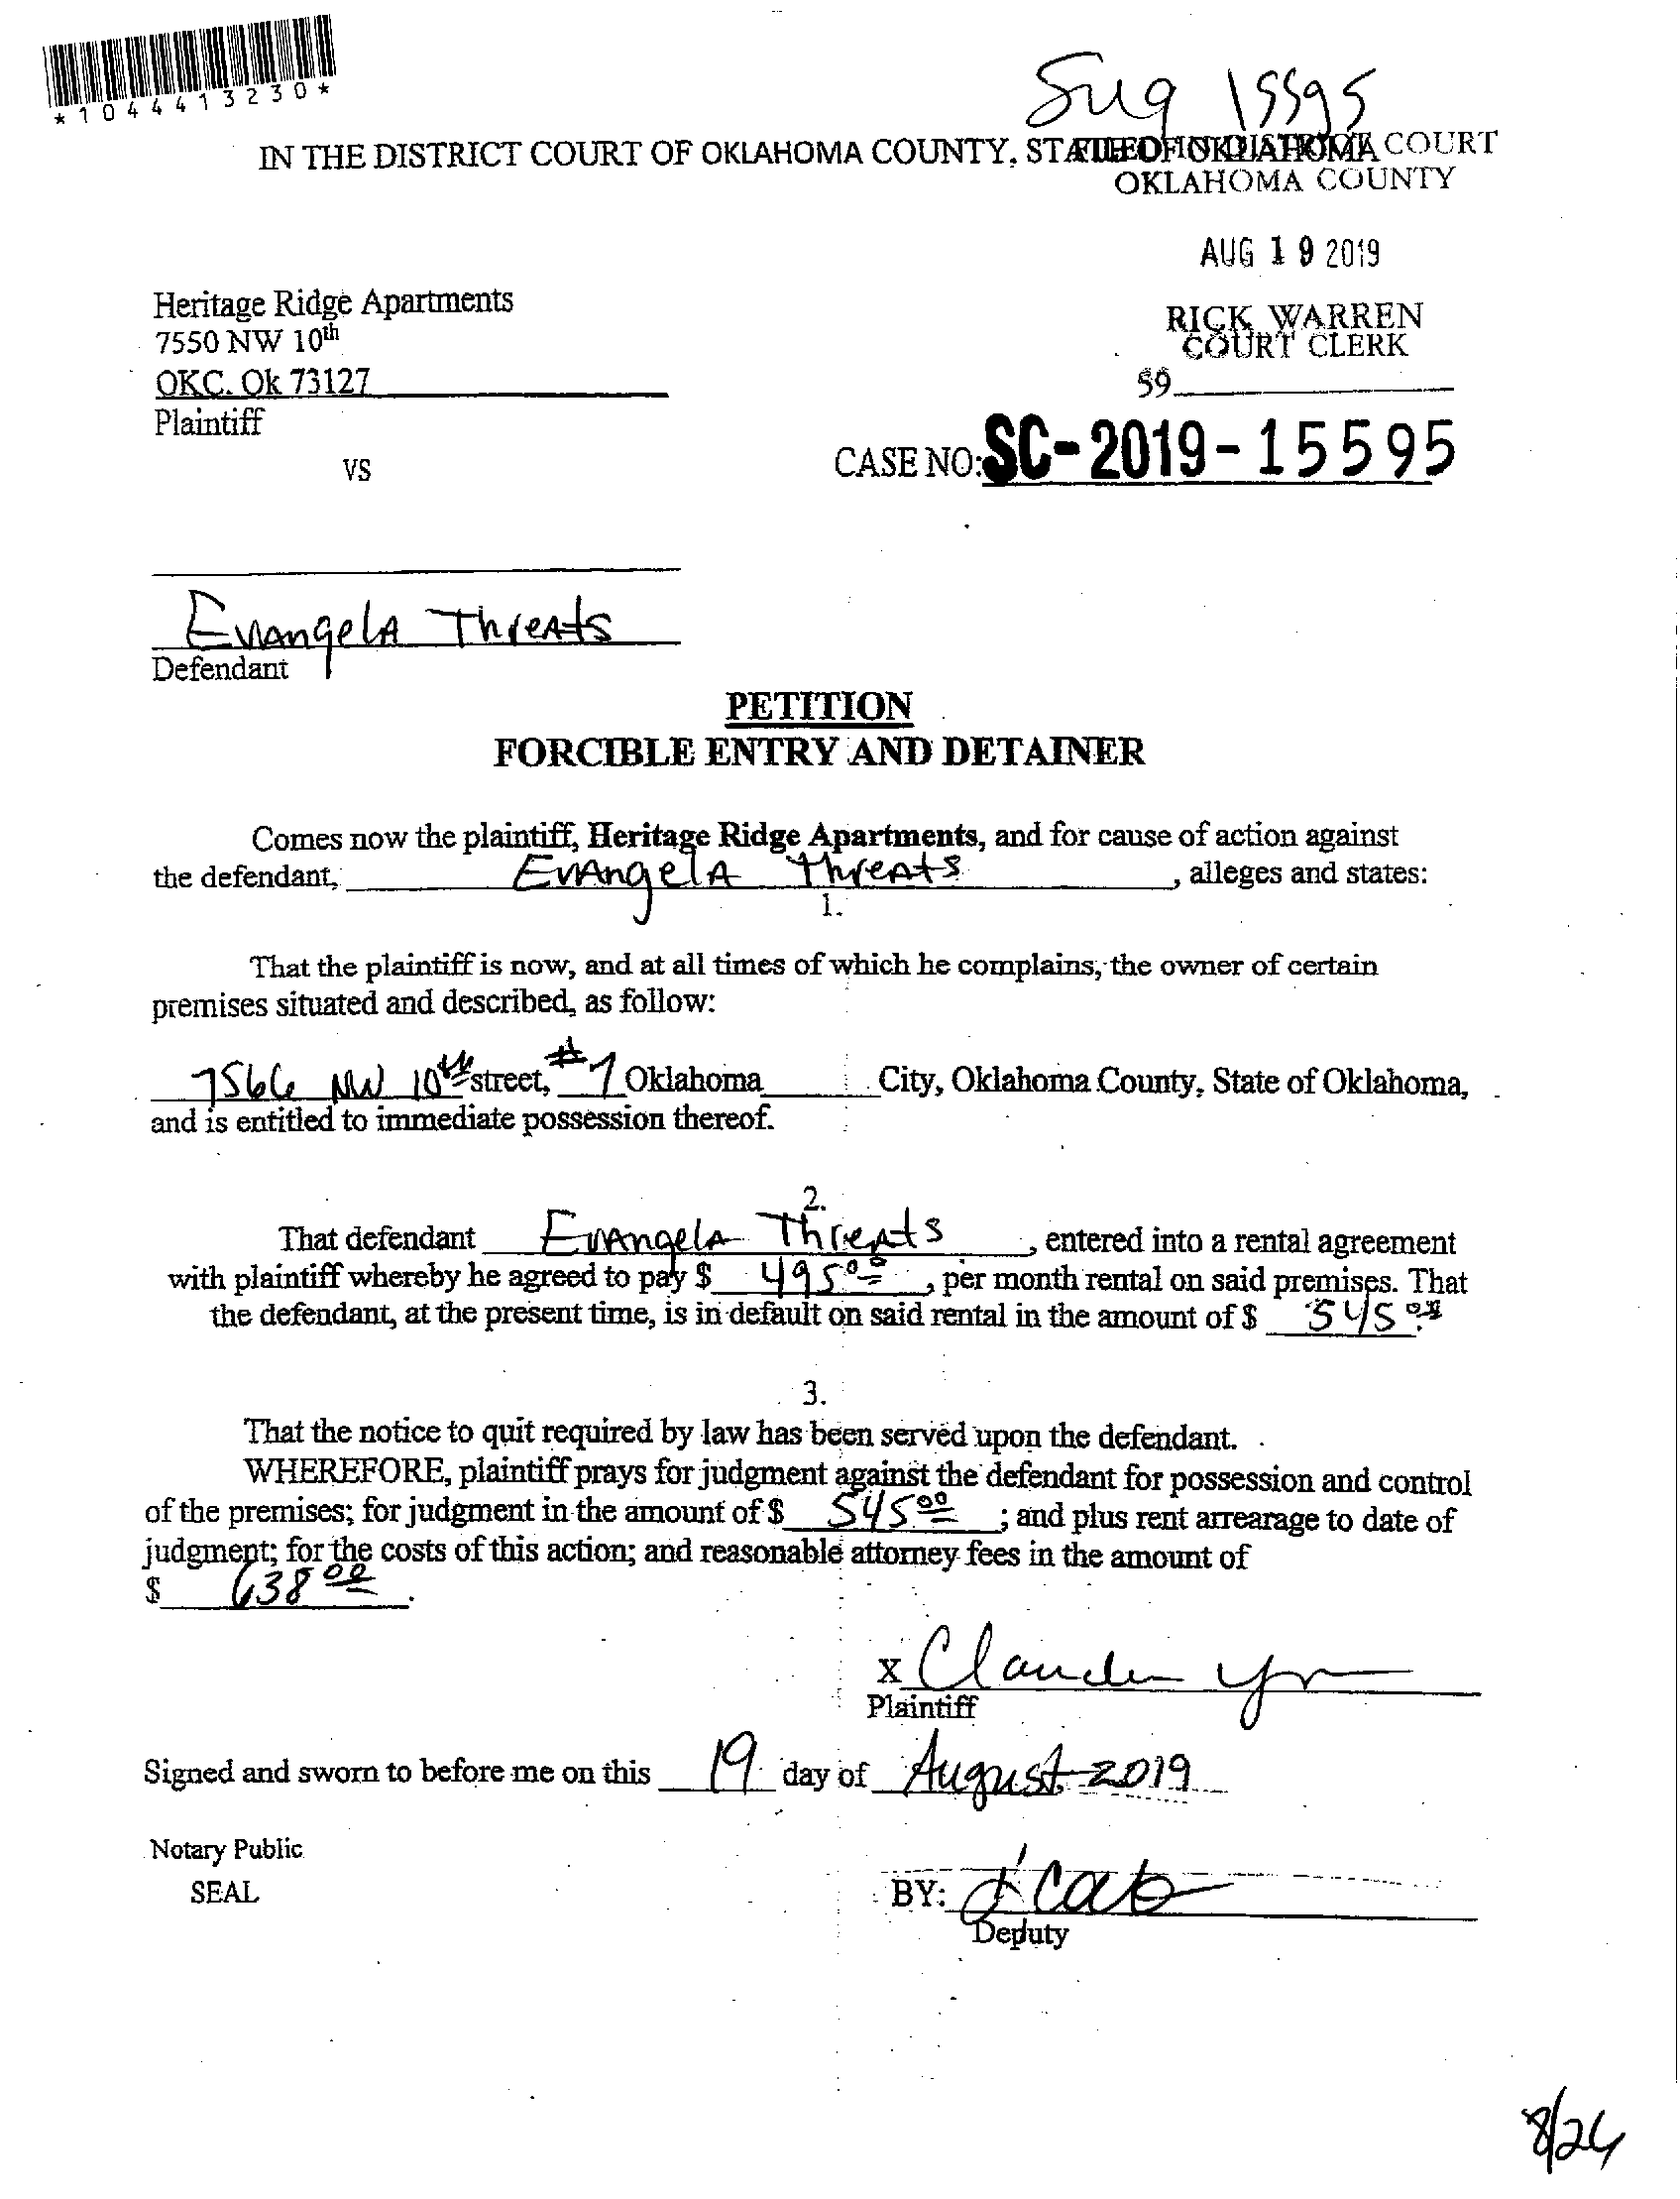 *1044413230*
15595
IN THE DISTRICT COURT OF OKLAHOMA COUNTY, STATE OF OKLAHOMA
FILED IN DISTRICT COURT
OKLAHOMA COUNTY
AUG 19 2019
Heritage Ridge Apartments
7550 NW 10th
OKC. Ok 73127
Plaintiff
RICK WARREN
COURT CLERK
59
VS
CASE NO: SC-2019-15595
Evangela Threats
Defendant
PETITION
FORCIBLE ENTRY AND DETAINER
Comes now the plaintiff, Heritage Ridge Apartments, and for cause of action against
the defendant, Evangela Threats, alleges and states:
1.
That the plaintiff is now, and at all times of which he complains, the owner of certain
premises situated and described, as follow:
7566 NW 10th street, #7 Oklahoma City, Oklahoma County, State of Oklahoma,
and is entitled to immediate possession thereof.
2.
That defendant Evangela Threats, entered into a rental agreement
with plaintiff whereby he agreed to pay $ 495.00, per month rental on said premises. That
the defendant, at the present time, is in default on said rental in the amount of $ 545.00
3.
That the notice to quit required by law has been served upon the defendant.
WHEREFORE, plaintiff prays for judgment against the defendant for possession and control
of the premises; for judgment in the amount of $ 545.00; and plus rent arrearage to date of
judgment; for the costs of this action; and reasonable attorney fees in the amount of
$ 638.00.
X
Plaintiff
Signed and sworn to before me on this 19 day of August 2019
Notary Public
SEAL
BY:
Deputy